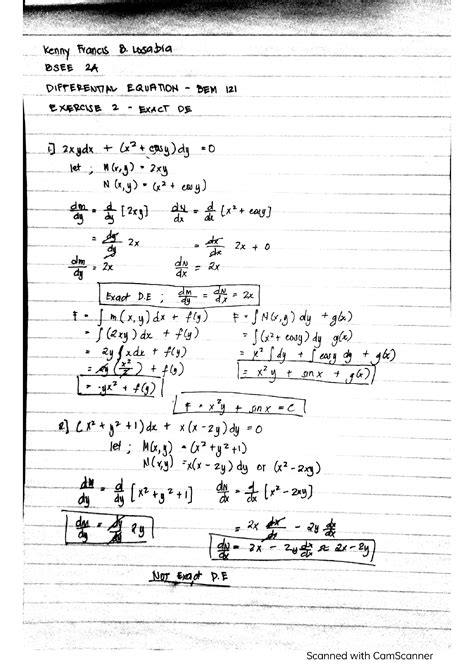 Kenny Francis B. Losabia
BSEE 2A
DIFFERENTIAL EQUATION - BEM 121
EXERCISE 2 - EXACT DE
1] 2xydx + (x² + cosy)dy = 0
let ; M(x,y) = 2xy
N(x,y) = (x² + cosy)
dm/dy = d/dy [2xy] dN/dx = d/dx [x² + cosy]
= dy/dy 2x = dx/dx 2x + 0
dm/dy = 2x dN/dx = 2x
Exact D.E ; dm/dy = dN/dx = 2x
F = ∫ m(x,y)dx + f(y) F = ∫N(x,y)dy + g(x)
= ∫(2xy)dx + f(y) = ∫(x² + cosy)dy g(x)
= 2y∫xdx + f(y) = x²∫dy + ∫cosy dy + g(x)
= 2y(x²/2) + f(y) = x²y + sinx + g(x)
= yx² + f(y)
F = x²y + sinx = C
2] (x² + y² + 1)dx + x(x - 2y)dy = 0
let ; M(x,y) = (x² + y² + 1)
N(x,y) = x(x - 2y) or (x² - 2xy)
dM/dy = d/dy [x² + y² + 1] dN/dx = d/dx [x² - 2xy]
dM/dy = dy/dy 2y = 2x dx/dx - 2y dx/dx
dN/dx = 2x - 2y dx/dx = 2x - 2y
NOT Exact D.E
Scanned with CamScanner